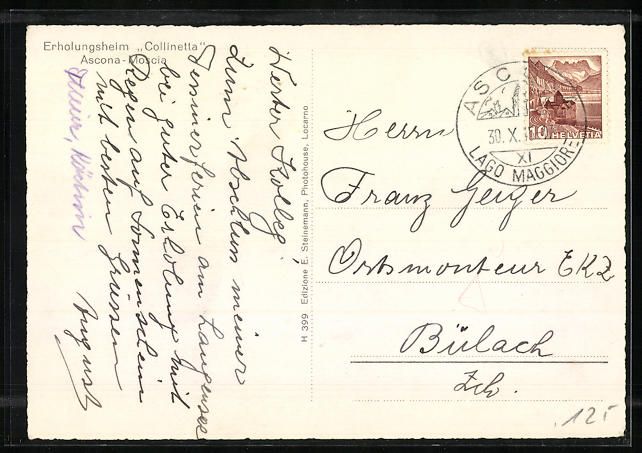 Erholungsheim „Collinetta"
Ascona-Moscia
Werter Kolleg!
Zum Abschluss meiner
Tessinerferien am Langensee
bei guter Erholung mit
Regen auf Sonnenschein
mit besten Grüssen
August
H 399 Edizione E. Steinemann, Photohouse, Locarno
ASC
30.X.
XI
LAGO MAGGIORE
10 HELVETIA
Herrn
Franz Geiger
Ortsmonteur EKZ
Bülach
Zch.
125